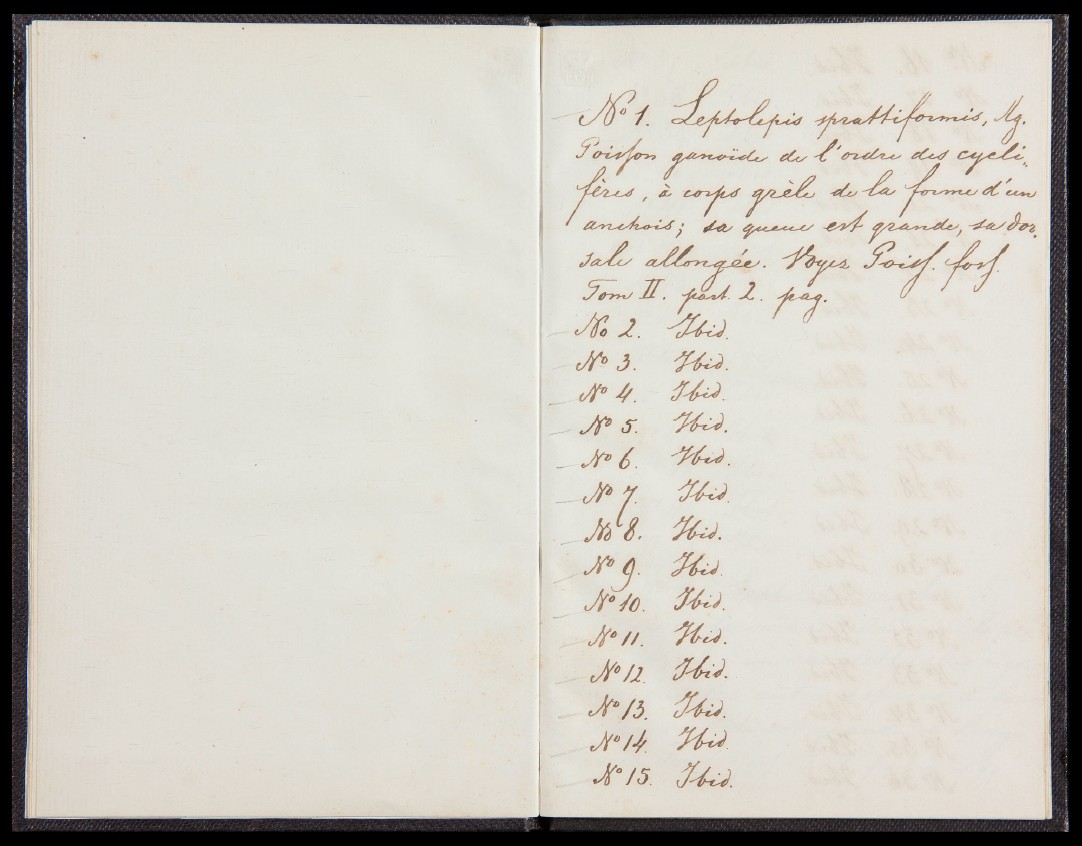 No 1. Leptolepis sprattiformis, Ag.
Poisson ganoïde de l'ordre des cycli„
fères, à corps grèle de la forme d'un
anchois; sa queue est grande, sa dor„
sale allongée. Voyez Poiss. foss.
Tom II. part. 2. pag.
No 2. Ibid.
No 3. Ibid.
No 4. Ibid.
No 5. Ibid.
No 6. Ibid.
No 7. Ibid.
No 8. Ibid.
No 9. Ibid.
No 10. Ibid.
No 11. Ibid.
No 12. Ibid.
No 13. Ibid.
No 14. Ibid.
No 15. Ibid.